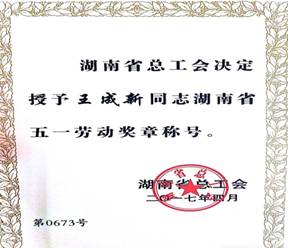 湖南省总工会决定
授予王成新同志湖南省
五一劳动奖章称号。
湖南省总工会
二〇一七年四月
第0673号